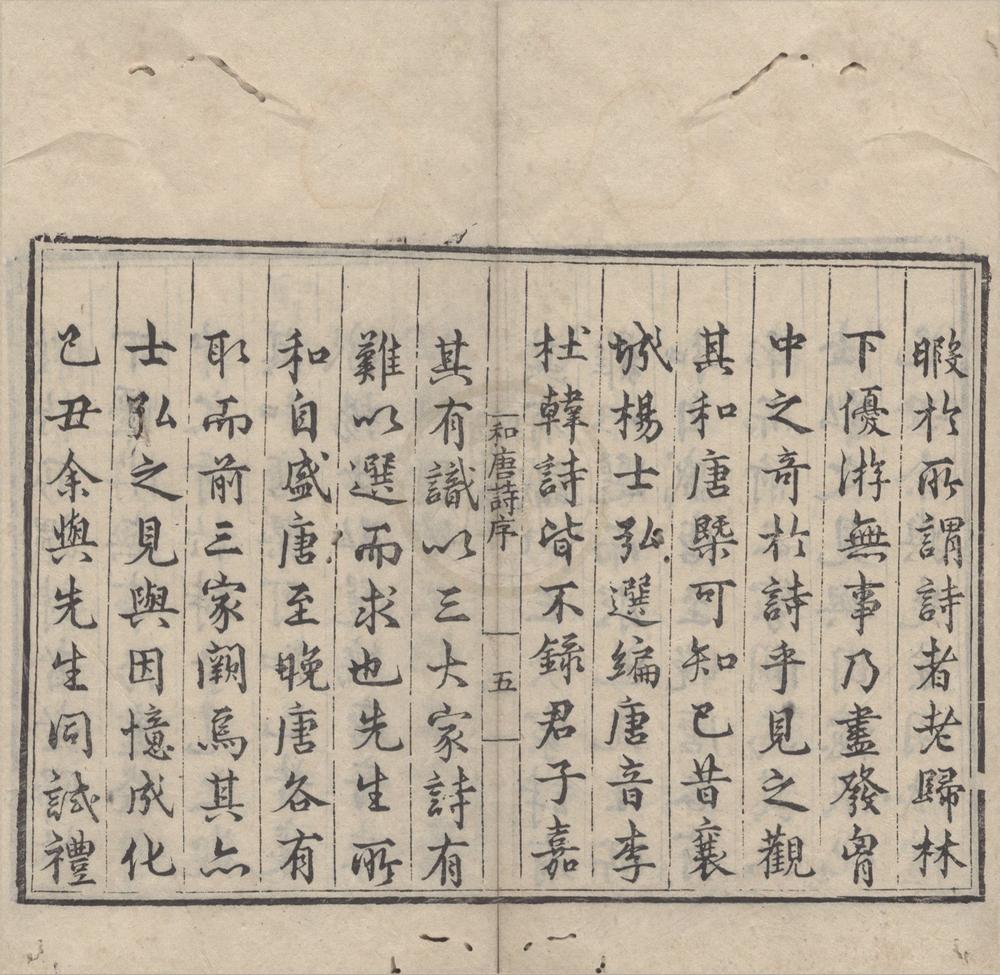 暇於所謂詩者老歸林
下優游無事乃盡發胷
中之奇於詩乎見之觀
其和唐槩可知已昔襄
城楊士弘選編唐音李
杜韓詩皆不錄君子嘉
和唐詩序
五
其有識以三大家詩有
難以選而求也先生所
和自盛唐至晚唐各有
取而前三家闕焉其亦
士弘之見與因憶成化
己丑余與先生同試禮